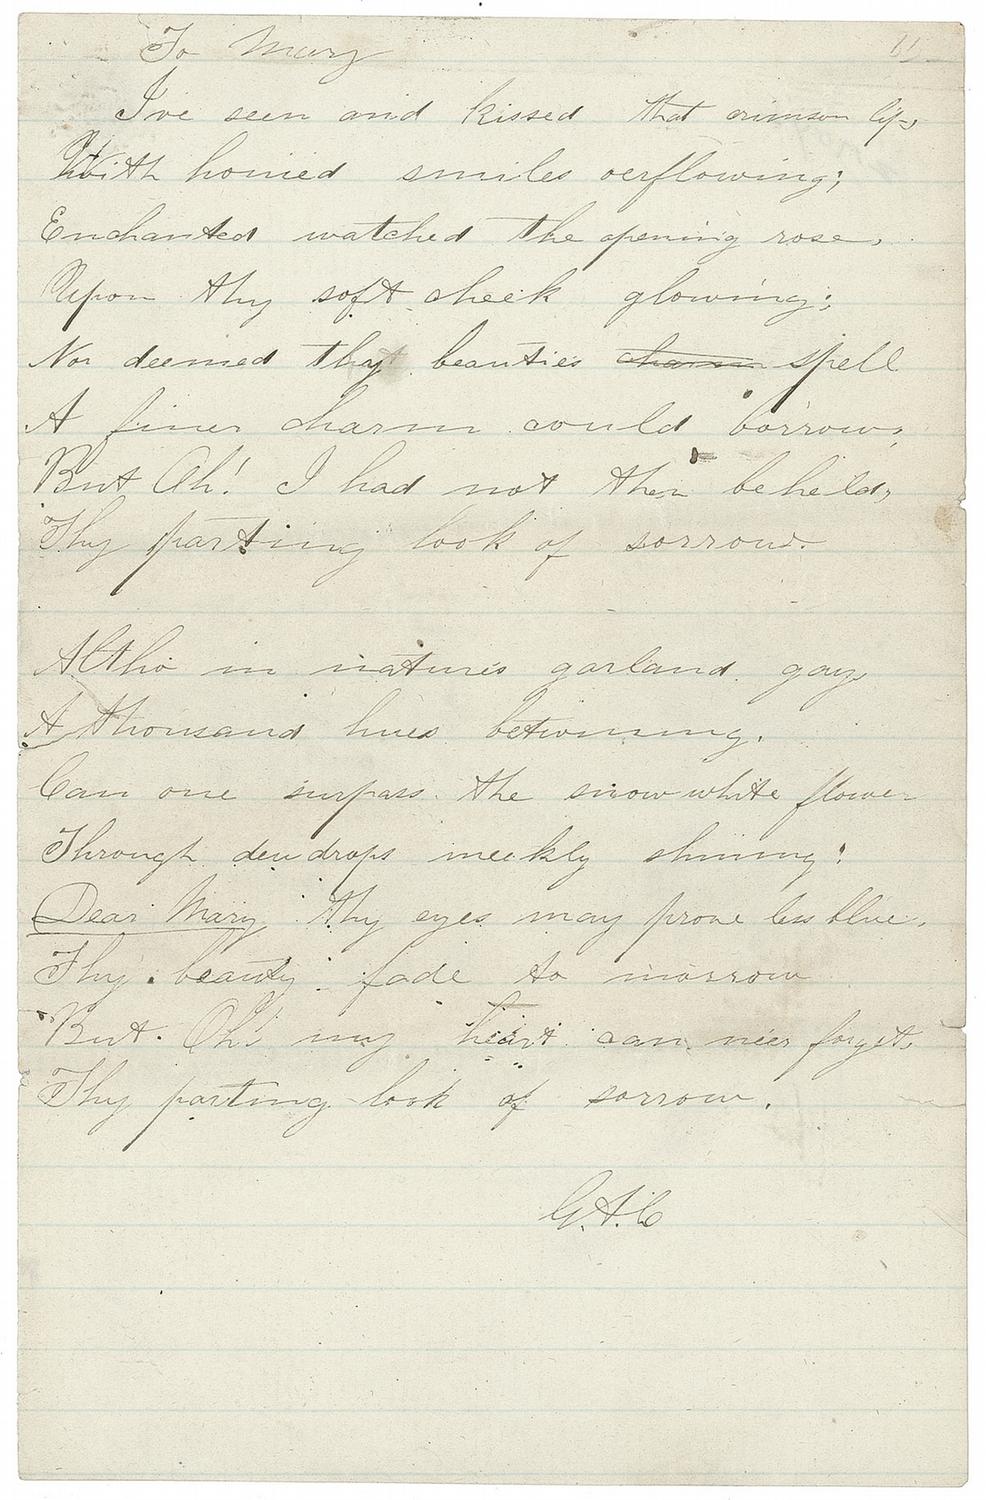 To Mary
I've seen and kissed that crimson lip,
With honied smiles oerflowing;
Enchanted watched the opening rose,
Upon thy soft cheek glowing;
Nor deemed thy beauties charm spell
A finer charm could borrow;
But Oh! I had not then beheld,
Thy parting look of sorrow.
Altho in natures garland gay
A thousand hues betwinning.
Can one surpass the snow white flower
Through dewdrops meekly shining:
Dear Mary thy eyes may prove less blue,
Thy beauty fade to morrow
But Oh! my heart can neer forget,
Thy parting look of sorrow.
G.A.C